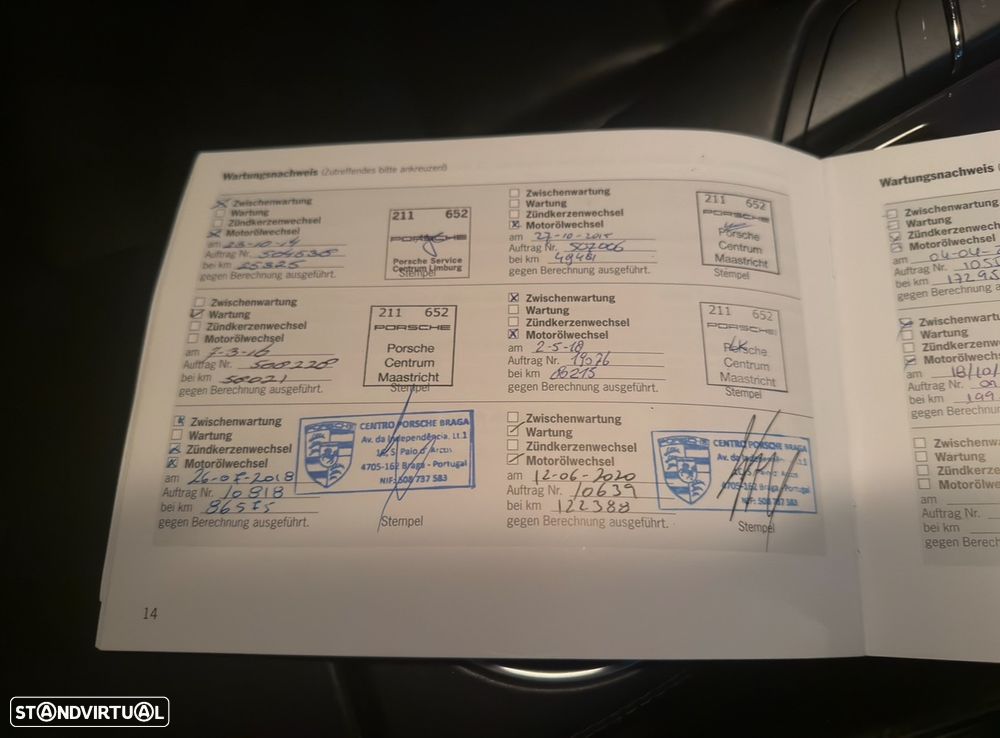 Wartungsnachweis (Zutreffendes bitte ankreuzen)
Zwischenwartung
Wartung
Zündkerzenwechsel
Motorölwechsel
am 23-10-14
Auftrag Nr. 504535
bei km 25325
gegen Berechnung ausgeführt.
211 652
PORSCHE
Porsche Service
Centrum Limburg
Stempel
Zwischenwartung
Wartung
Zündkerzenwechsel
Motorölwechsel
am 27-10-2015
Auftrag Nr. 507006
bei km 49481
gegen Berechnung ausgeführt.
211 652
PORSCHE
Porsche
Centrum
Maastricht
Stempel
Zwischenwartung
Wartung
Zündkerzenwechsel
Motorölwechsel
am 7-3-16
Auftrag Nr. 500228
bei km 50021
gegen Berechnung ausgeführt.
211 652
PORSCHE
Porsche
Centrum
Maastricht
Stempel
Zwischenwartung
Wartung
Zündkerzenwechsel
Motorölwechsel
am 2-5-18
Auftrag Nr. 19076
bei km 86215
gegen Berechnung ausgeführt.
211 652
PORSCHE
Porsche
Centrum
Maastricht
Stempel
Zwischenwartung
Wartung
Zündkerzenwechsel
Motorölwechsel
am 26-07-2018
Auftrag Nr. 10818
bei km 86575
gegen Berechnung ausgeführt.
CENTRO PORSCHE BRAGA
Av. da Independência, Lt.1
S. Paio d' Arcos
4705-162 Braga - Portugal
NIF: 508 737 583
Stempel
Zwischenwartung
Wartung
Zündkerzenwechsel
Motorölwechsel
am 12-06-2020
Auftrag Nr. 10639
bei km 122388
gegen Berechnung ausgeführt.
CENTRO PORSCHE BRAGA
Av. da
S. Paio d' Arcos
4705-162 Braga - Portugal
NIF: 508 737 583
Stempel
14
Wartungsnachweis
Zwischenwartung
Wartung
Zündkerzenwechsel
Motorölwechsel
am 04-04-
Auftrag Nr.
bei km
gegen Berechnung
Wartung
am 18/10/
Auftrag Nr.
bei km 199
gegen Berechnung
Wartung
am
Auftrag Nr.
bei km
gegen Berechnung
STANDVIRTUAL